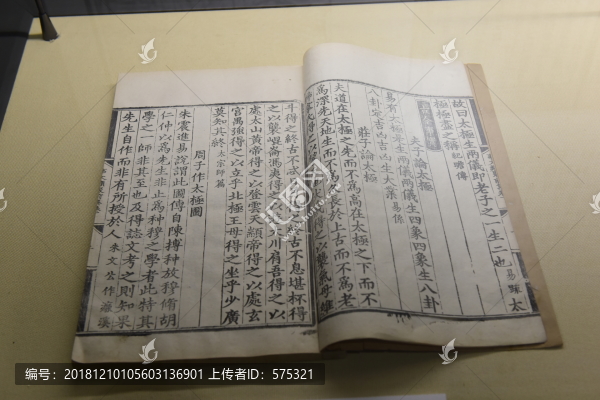 故曰太極生兩儀即老子之一生二也易疏太
極極虛之稱
夫子論太極
易有太極是生兩儀兩儀生四象四象生八卦
八卦定吉凶吉凶生大業易係
莊子論太極
夫道在太極之先而不爲高在太極之下而不
爲深先天地生而不爲久長於上古而不爲老
斗得之終古不忒日月得之終古不息堪杯得
之以襲崐崙馮夷得之以遊大川肩吾得之以
處太山黃帝得之以登雲天顓帝得之以處玄
宮禺强得之以立乎北極王母得之坐乎少廣
莫知其終太宗師篇
周子作太極圖
朱震進易說謂此圖傳自陳摶种放穆脩胡
仁仲以爲先生非止爲种穆之學者此特其
學之一師非其至也及得誌文考之則知果
先生自作而非有所授於人朱文公作濂溪
编号:20181210105603136901 上传者ID:575321